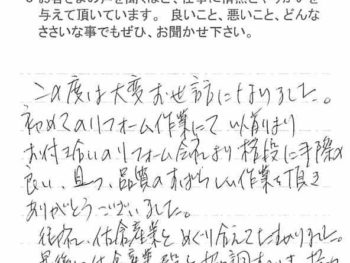 お客さまの声を聞くほど、仕事に情熱とやりがいを
与えて頂いています。 良いこと、悪いこと、どんな
ささいな事でもぜひ、お聞かせ下さい。
この度は大変お世話になりました。
初めてのリフォーム作業にて 以前より
お付き合いのリフォーム会社より 格段に手際の
良い、且つ、品質のすばらしい作業を頂き
ありがとうございました。
佐倉産業と めぐり合えて 助かりました。